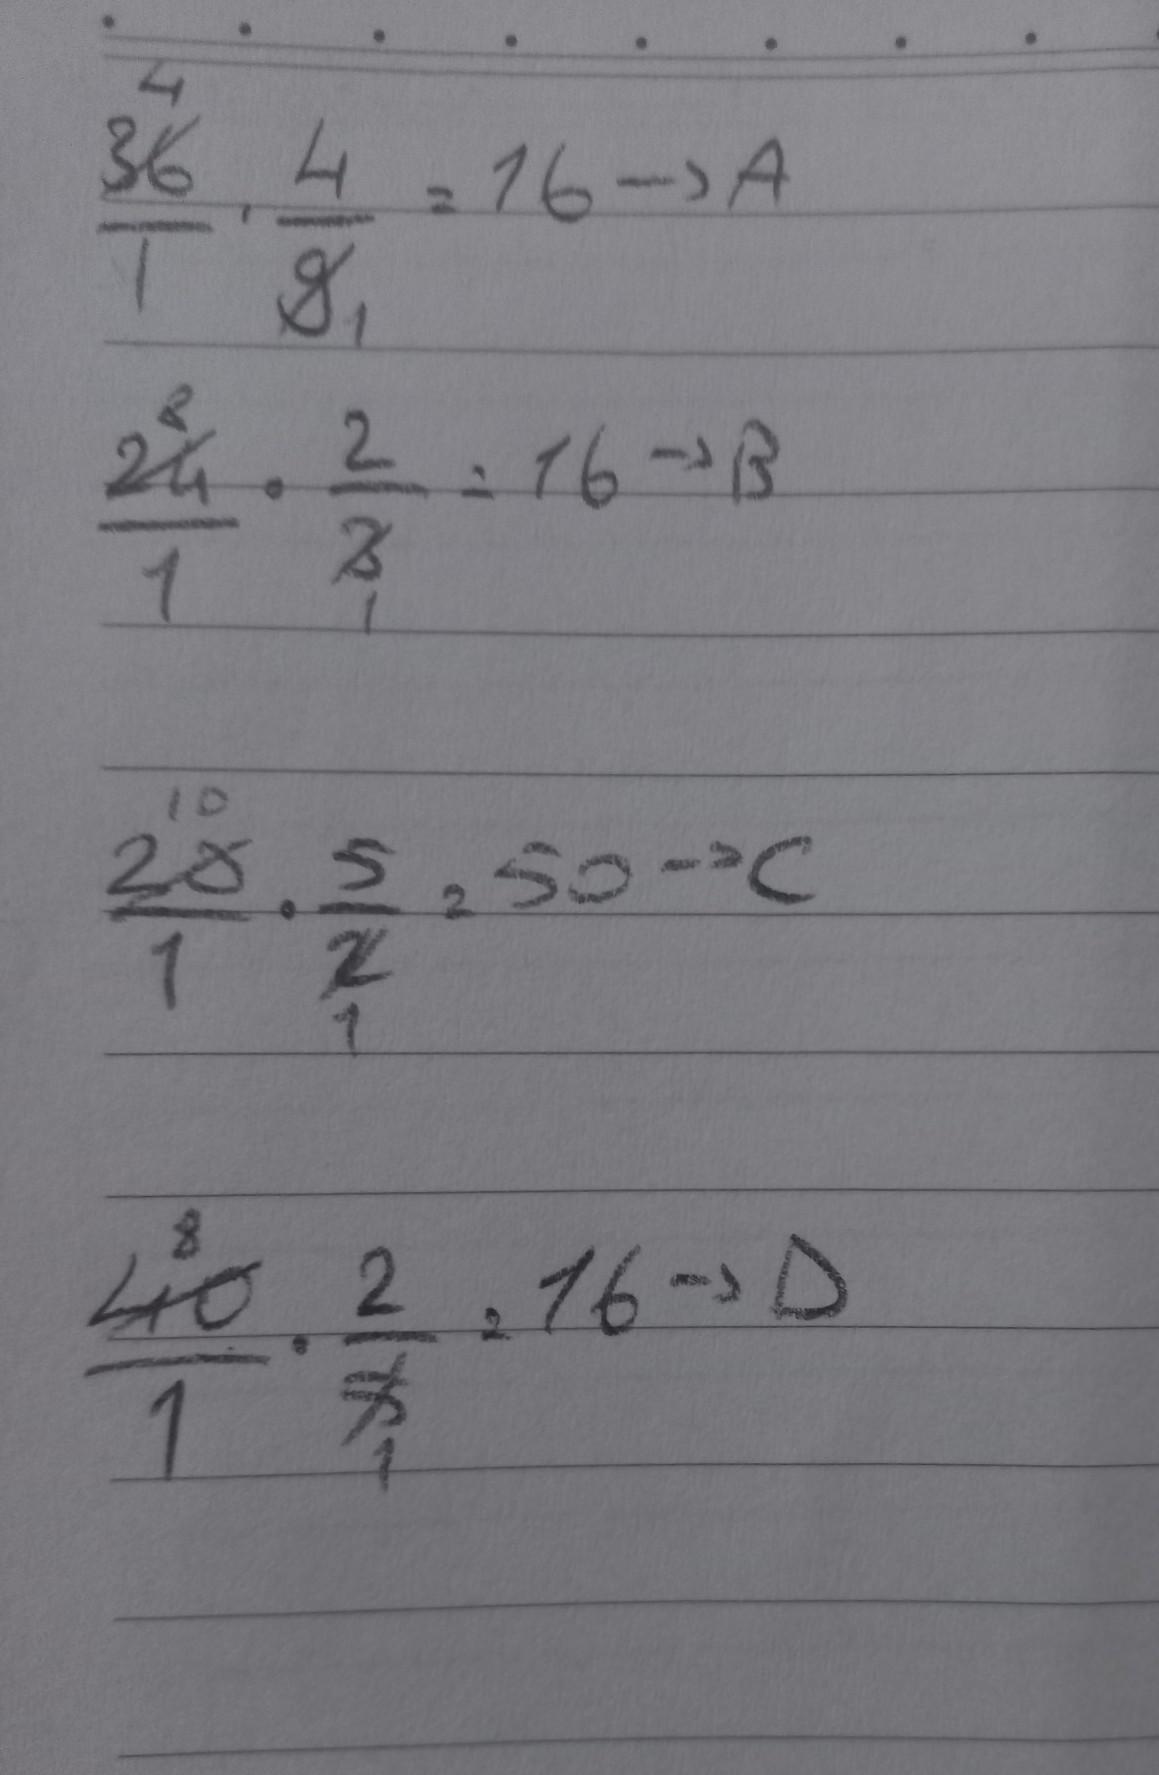 4
36/1 · 4/9 1 = 16 → A
8
24/1 · 2/3 1 = 16 → B
10
20/1 · 5/2 1 = 50 → C
8
40/1 · 2/5 1 = 16 → D